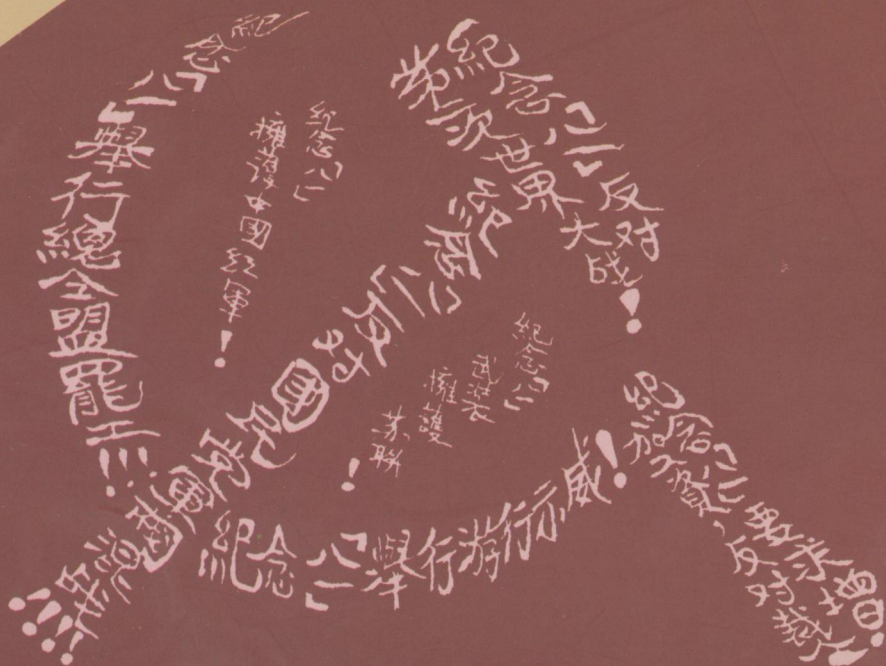 紀念「八一」舉行總全盟罷工!!!
紀念「八一」
擁護中國紅軍!
紀念「八一」反对
第二次世界大战!
紀念「八一」反对國民党軍閥混战!!!!
紀念「八一」
武装
擁護
苏聯!
紀念「八一」舉行游行示威!
紀念「八一」要求增
加工資,反对